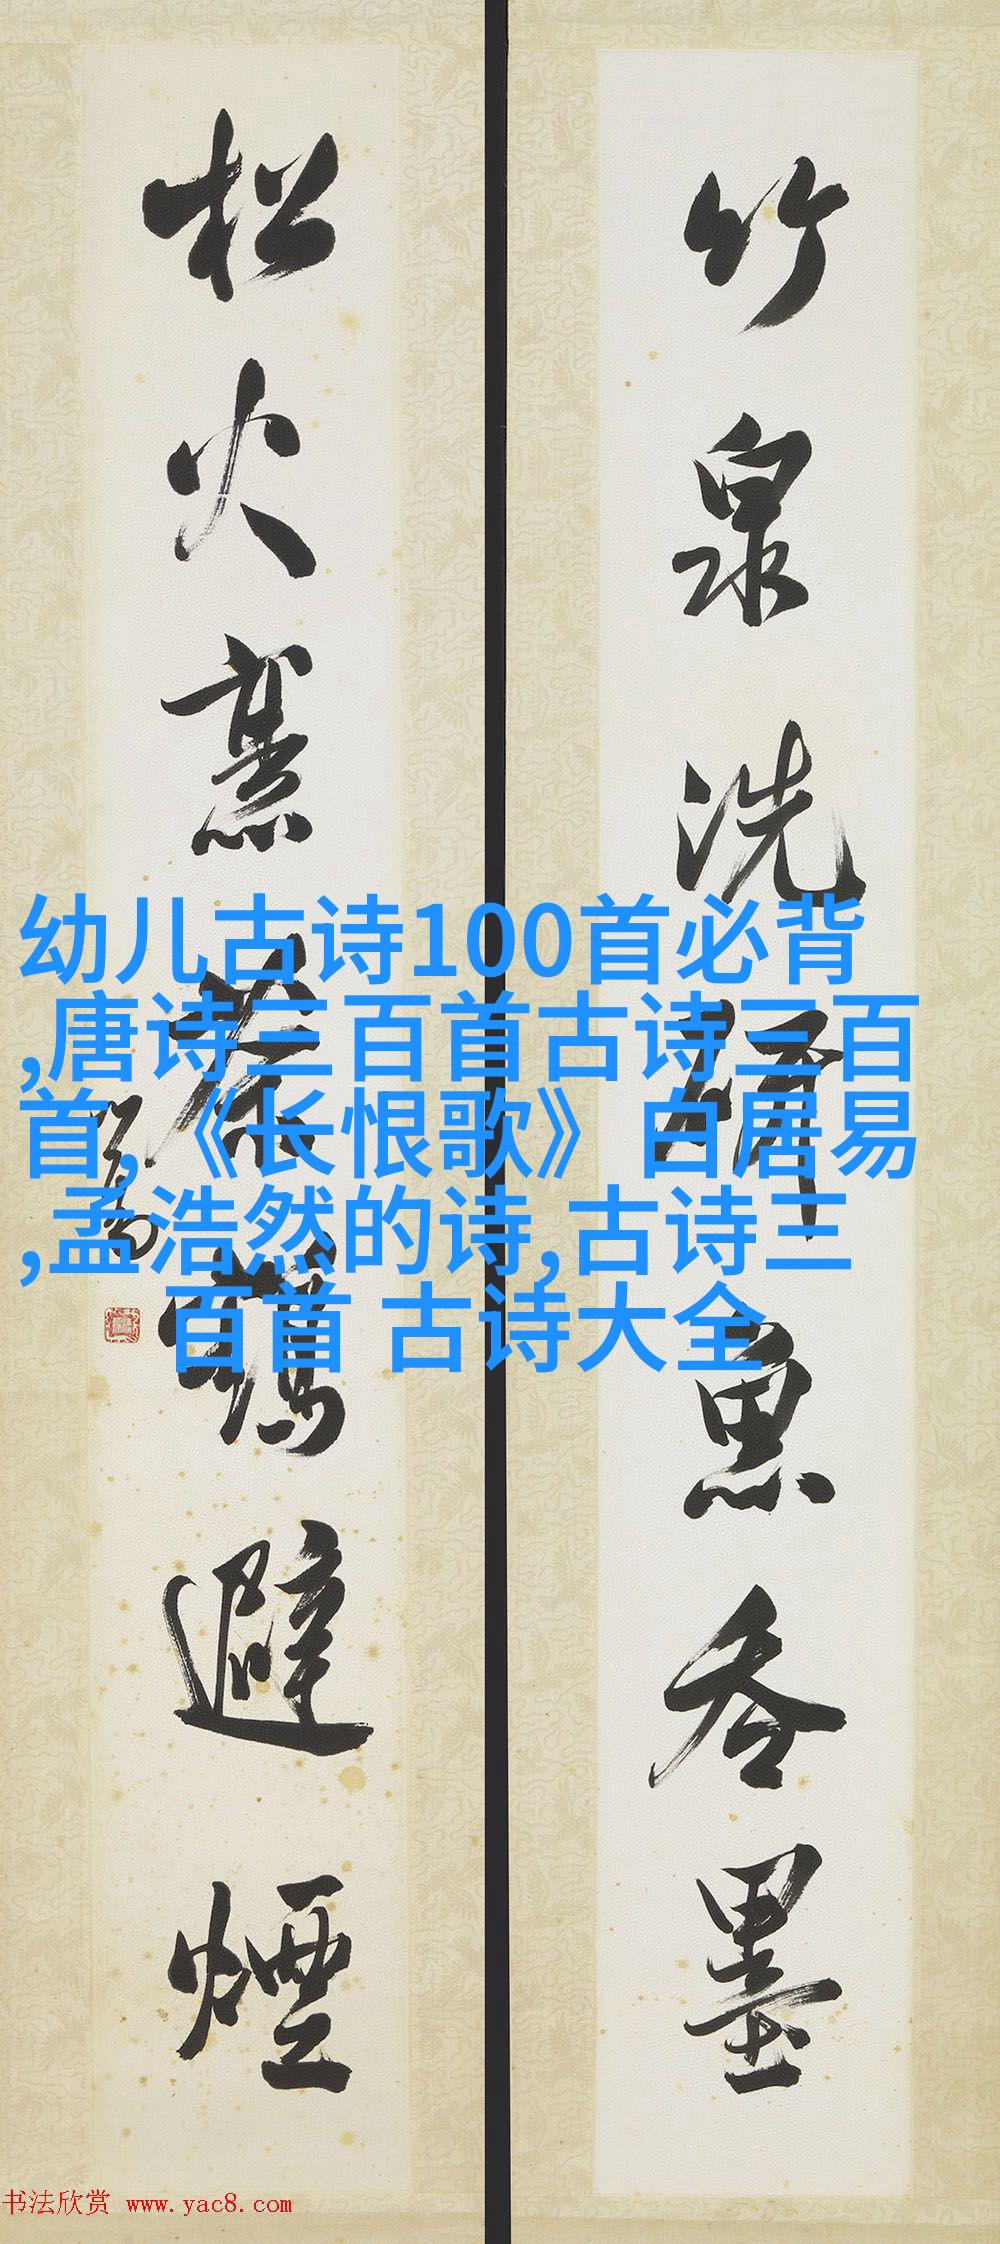 竹泉洗研魚吞墨
松火烹茶鶴避煙
幼儿古诗100首必背
,唐诗三百首古诗三百
首,《长恨歌》白居易
,孟浩然的诗,古诗三
百首 古诗大全
书法欣赏 www.yac8.com